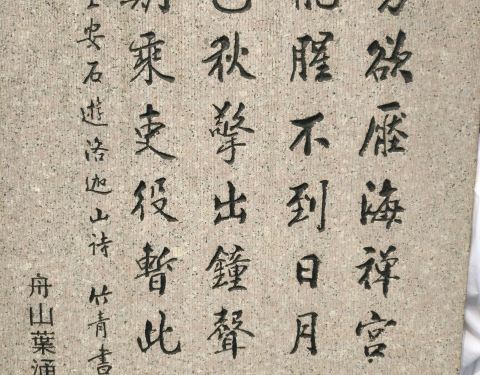 欲壓海禪宮
腥不到日月
色秋擎出鐘聲
期乘吏役暫此
安石遊洛迦山詩 竹青書
舟山葉